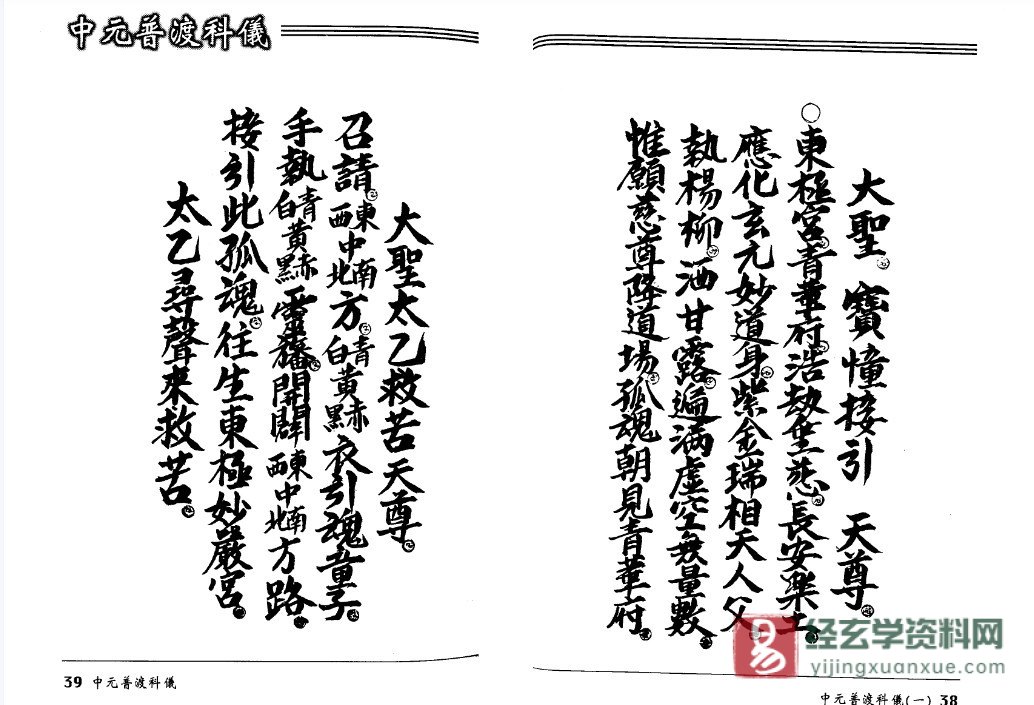 中元普渡科儀
大聖 寶幢接引 天尊
○東極宮青華府浩劫垂慈長安樂土
應化玄元妙道身紫金瑞相天人父
執楊柳洒甘露遍滿虛空無量數
惟願慈尊降道場孤魂朝見青華府
中元普渡科儀(一) 38
大聖太乙救苦天尊
召請東西中南北方青白黃赤黑衣引魂童子
手執青白黃赤黑靈旛開闢東西中南北方路
接引此孤魂往生東極妙嚴宮
太乙尋聲來救苦
39 中元普渡科儀
易
经玄学资料网
yijingxuanxue.com